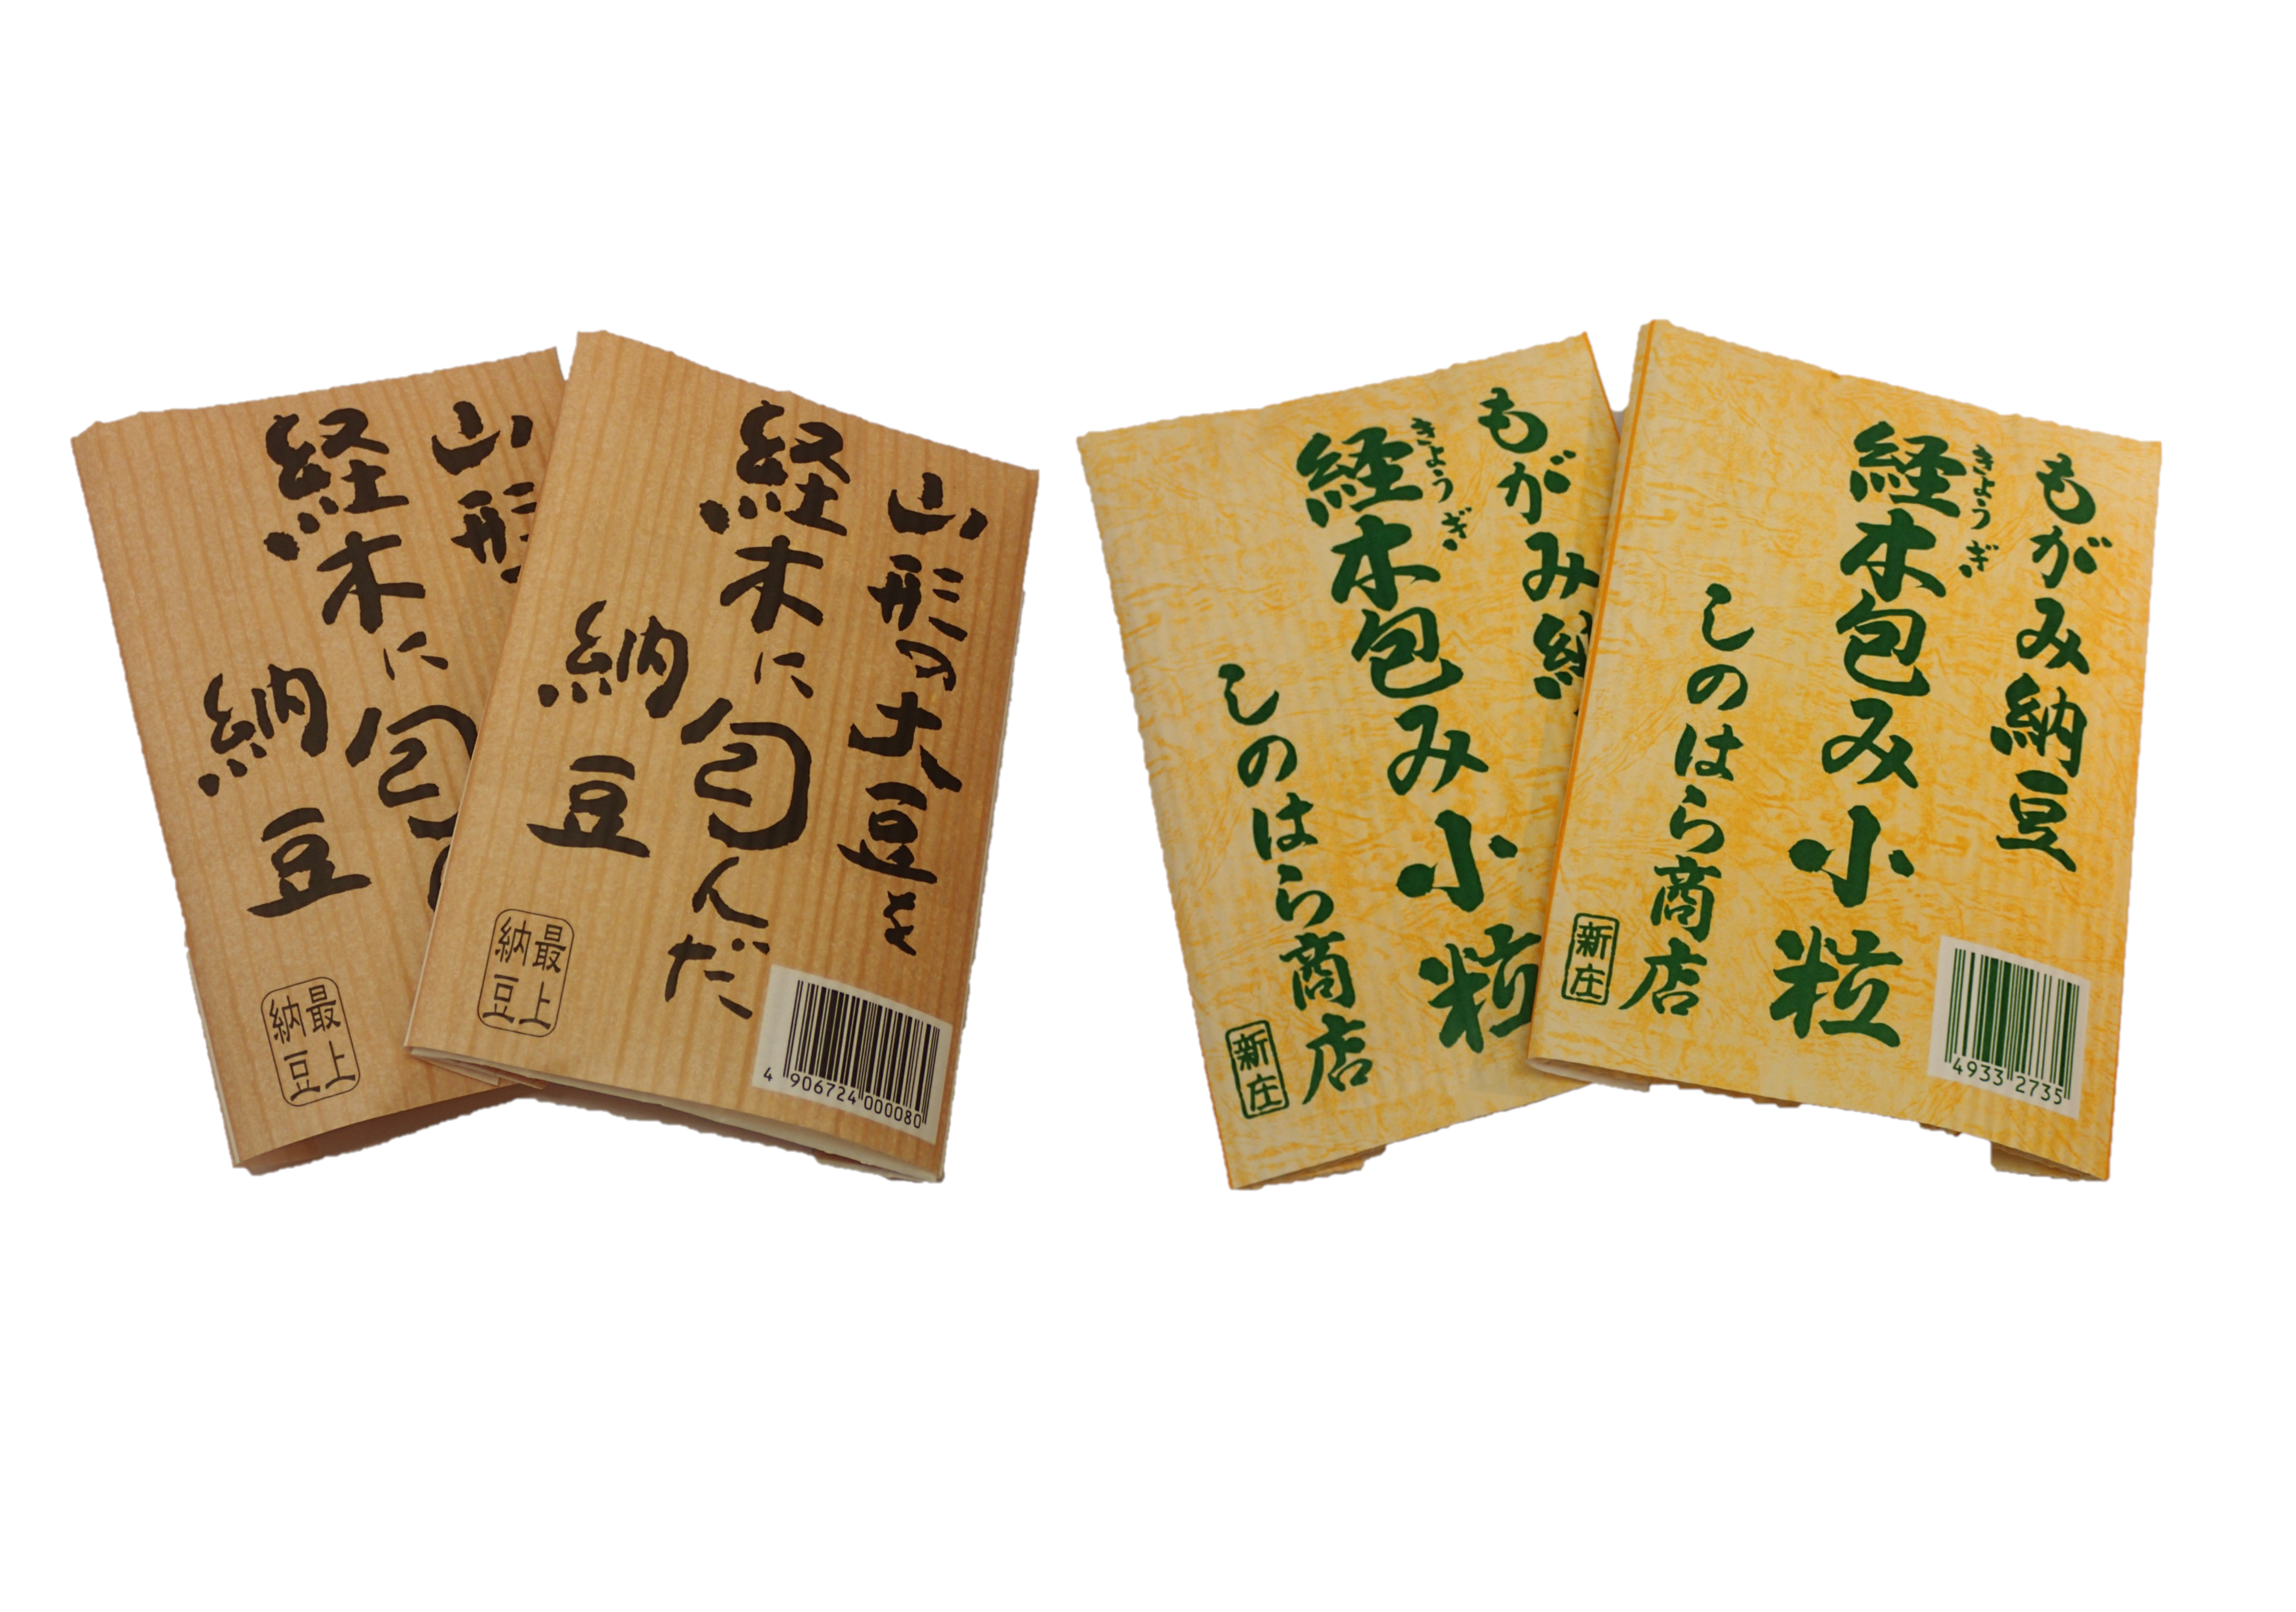 山形
経木に包
納豆
最上
納豆
山形の大豆を
経木に包んだ
納豆
最上
納豆
4 906724 000080
もがみ納
きょうぎ
経木包み小粒
しのはら商店
新庄
もがみ納豆
きょうぎ
経木包み小粒
しのはら商店
新庄
4933 2735